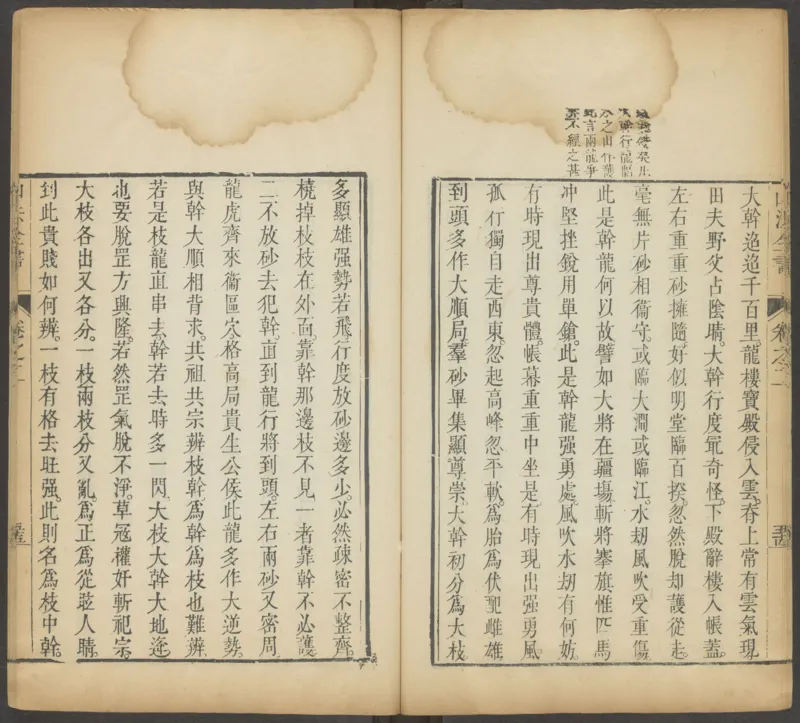 大幹迢迢千百里。龍樓寶殿侵入雲。脊上常有雲氣現
田夫野叟占陰晴。大幹行度最奇怪。下殿辭樓入帳蓋。
左右重重砂擁隨。好似明堂臨百揆。忽然脫却護從走。
毫無片砂相衞守。或臨大澗或臨江。水刼風吹受重傷
此是幹龍何以故譬如大將在疆場斬將搴旗惟匹馬
冲堅挫銳用單鎗。此是幹龍强勇處。風吹水刼有何妨。
有時現出尊貴體。帳幕重重中坐是。有時現出强勇風。
孤行獨自走西東。忽起高峰忽平軟。爲胎爲伏觀雌雄
到頭多作大順局。羣砂畢集顯尊崇。大幹初分爲大枝
之山行護
此言兩龍爭
不經之甚
卷之二
多顯雄强勢若飛。行度放砂邊多少。必然疎密不整齊。
橈掉枝枝在外面。靠幹那邊枝不見一者靠幹不必護
二不放砂去犯幹。直到龍行將到頭。左右兩砂又密周
龍虎齊來衞區穴格高局貴生公侯。此龍多作大逆勢。
與幹大順相背求。共祖共宗辨枝幹。爲幹爲枝也難辨
若是枝龍直串去幹若去時多一閃。大枝大幹大地逢
也要脫罡方興隆。若然罡氣脫不淨。草寇權奸斬祀宗。
大枝各出又各分。一枝兩枝分又亂。爲正爲從惑人睛。
到此貴賤如何辨。一枝有格去旺强。此則名爲枝中幹。
卷之二